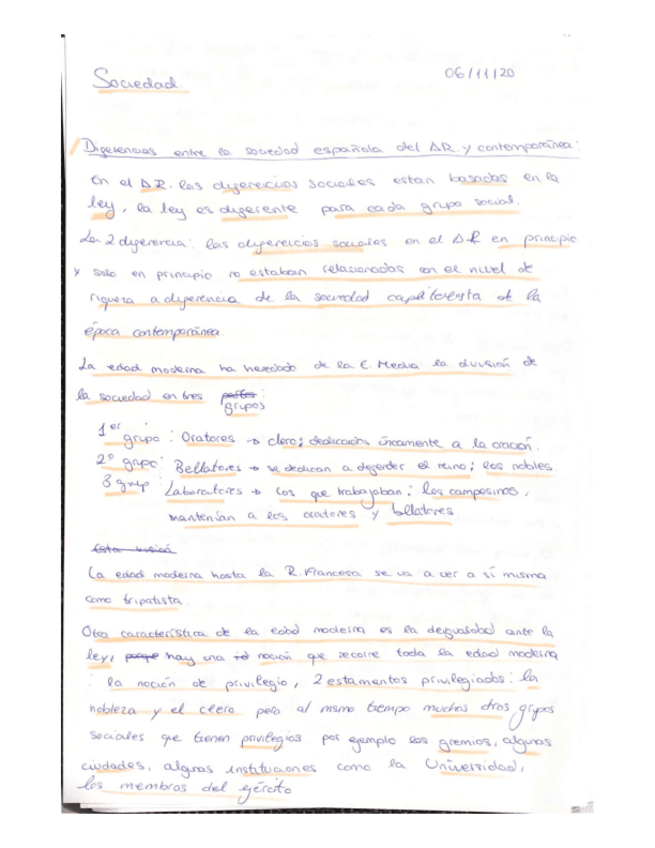 Sociedad
06/11/20
Diferencias entre la sociedad española del A.R. y contemporánea:
En el A.R. las diferencias sociales estan basadas en la
ley, la ley es diferente para cada grupo social.
La 2 diferencia: las diferencias sociales en el A.R en principio
y solo en principio no estaban relacionadas con el nivel de
riqueza a diferencia de la sociedad capitalista de la
época contemporánea.
La edad moderna ha heredado de la E. Media la división de
la sociedad en tres partes:
grupos
1er grupo: Oratores → clero; dedicación únicamente a la oración.
2º grupo: Bellatores → se dedican a defender el reino; los nobles.
3 grup: Laboratores → Los que trabajaban; los campesinos,
mantenían a los oratores y bellatores.
Esta
La edad moderna hasta la R. Francesa se va a ver a sí misma
como tripatista.
Otra característica de la edad moderna es la desigualdad ante la
ley, porque hay una noción que recorre toda la edad moderna
: la noción de privilegio, 2 estamentos privilegiados: la
nobleza y el clero pero al mismo tiempo muchos otros grupos
sociales que tienen privilegios por ejemplo los gremios, algunas
ciudades, algunas instituciones como la Universidad,
los membros del ejército